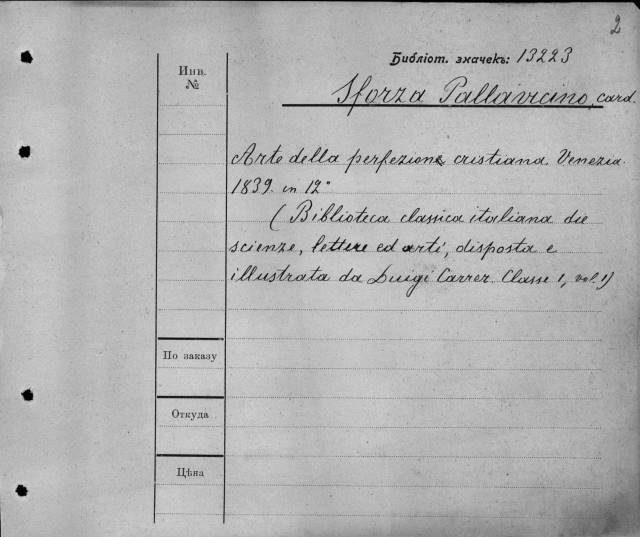 2
Библіот. значекъ: 13223
Инв.
№
Sforza Pallavicino, card.
Arte della perfezione cristiana. Venezia.
1839. in 12°
( Biblioteca classica italiana die
scienze, lettere ed arti, disposta e
illustrata da Luigi Carrer. Classe 1, vol. 1)
По заказу
Откуда
Цѣна